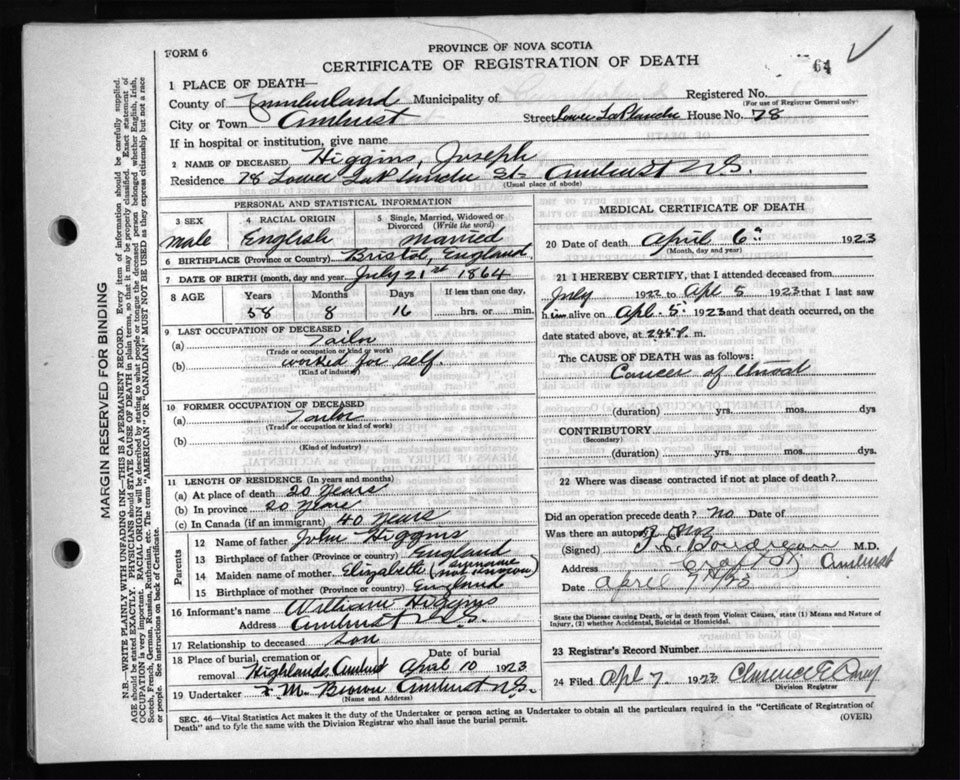 FORM 6
PROVINCE OF NOVA SCOTIA
CERTIFICATE OF REGISTRATION OF DEATH
64
1 PLACE OF DEATH—
County of Cumberland Municipality of Registered No.
(For use of Registrar General only)
City or Town Amherst Street Lower LaPlanche House No. 78
If in hospital or institution, give name
2 NAME OF DECEASED Higgins, Joseph
Residence 78 Lower LaPlanche St- Amherst N.S.
(Usual place of abode)
PERSONAL AND STATISTICAL INFORMATION
3 SEX 4 RACIAL ORIGIN 5 Single, Married, Widowed or Divorced (Write the word)
male English married
6 BIRTHPLACE (Province or Country) Bristol, England.
7 DATE OF BIRTH (month, day and year) July 21st 1864
8 AGE Years Months Days If less than one day,
58 8 16 hrs. or min.
9 LAST OCCUPATION OF DECEASED
(a) Tailor
(Trade or occupation or kind of work)
(b) worked for self.
(Kind of industry)
10 FORMER OCCUPATION OF DECEASED
(a) Tailor
(Trade or occupation or kind of work)
(b)
(Kind of industry)
11 LENGTH OF RESIDENCE (In years and months)
(a) At place of death 20 years
(b) In province 20 years
(c) In Canada (if an immigrant) 40 years
Parents
12 Name of father John Higgins
13 Birthplace of father (Province or country) England
14 Maiden name of mother Elizabeth (surname not known)
15 Birthplace of mother (Province or country) England
16 Informant's name William Higgins
Address Amherst N.S.
17 Relationship to deceased Son
18 Place of burial, cremation or removal Date of burial
Highlands, Amherst April 10 1923
19 Undertaker M. Brown Amherst N.S.
(Name and Address)
MEDICAL CERTIFICATE OF DEATH
20 Date of death April 6th 1923
(Month, day and year)
21 I HEREBY CERTIFY, that I attended deceased from
July 1922 to Apl 5 1923 that I last saw
him alive on Apl. 5. 1923 and that death occurred, on the
date stated above, at 245 P. m.
The CAUSE OF DEATH was as follows:
Cancer of throat
(duration) yrs. mos. dys
CONTRIBUTORY
(Secondary)
(duration) yrs. mos. dys
22 Where was disease contracted if not at place of death?
Did an operation precede death? no Date of
Was there an autopsy? no
(Signed) Boudreau M.D.
Address Amherst
Date April
State the Disease causing Death, or in death from Violent Causes, state (1) Means and Nature of
Injury, (2) whether Accidental, Suicidal or Homicidal.
23 Registrar's Record Number
24 Filed Apl 7 1923 Clarence E
Division Registrar
SEC. 46—Vital Statistics Act makes it the duty of the Undertaker or person acting as Undertaker to obtain all the particulars required in the "Certificate of Registration of
Death" and to fyle the same with the Division Registrar who shall issue the burial permit.
(OVER)
MARGIN RESERVED FOR BINDING
N.B.—WRITE PLAINLY WITH UNFADING INK—THIS IS A PERMANENT RECORD. Every item of information should be carefully supplied.
AGE should be stated EXACTLY. PHYSICIANS should STATE CAUSE OF DEATH in plain terms, so that it may be properly classified. Exact statement of
OCCUPATION is very important. RACIAL ORIGIN will be described by stating to what people or tongue the deceased person belonged whether English, Irish,
Scotch, French, German, Russian, Ruthenian, etc. The terms "AMERICAN" or "CANADIAN" MUST NOT BE USED as they express citizenship but not a race
or people. See instructions on back of Certificate.